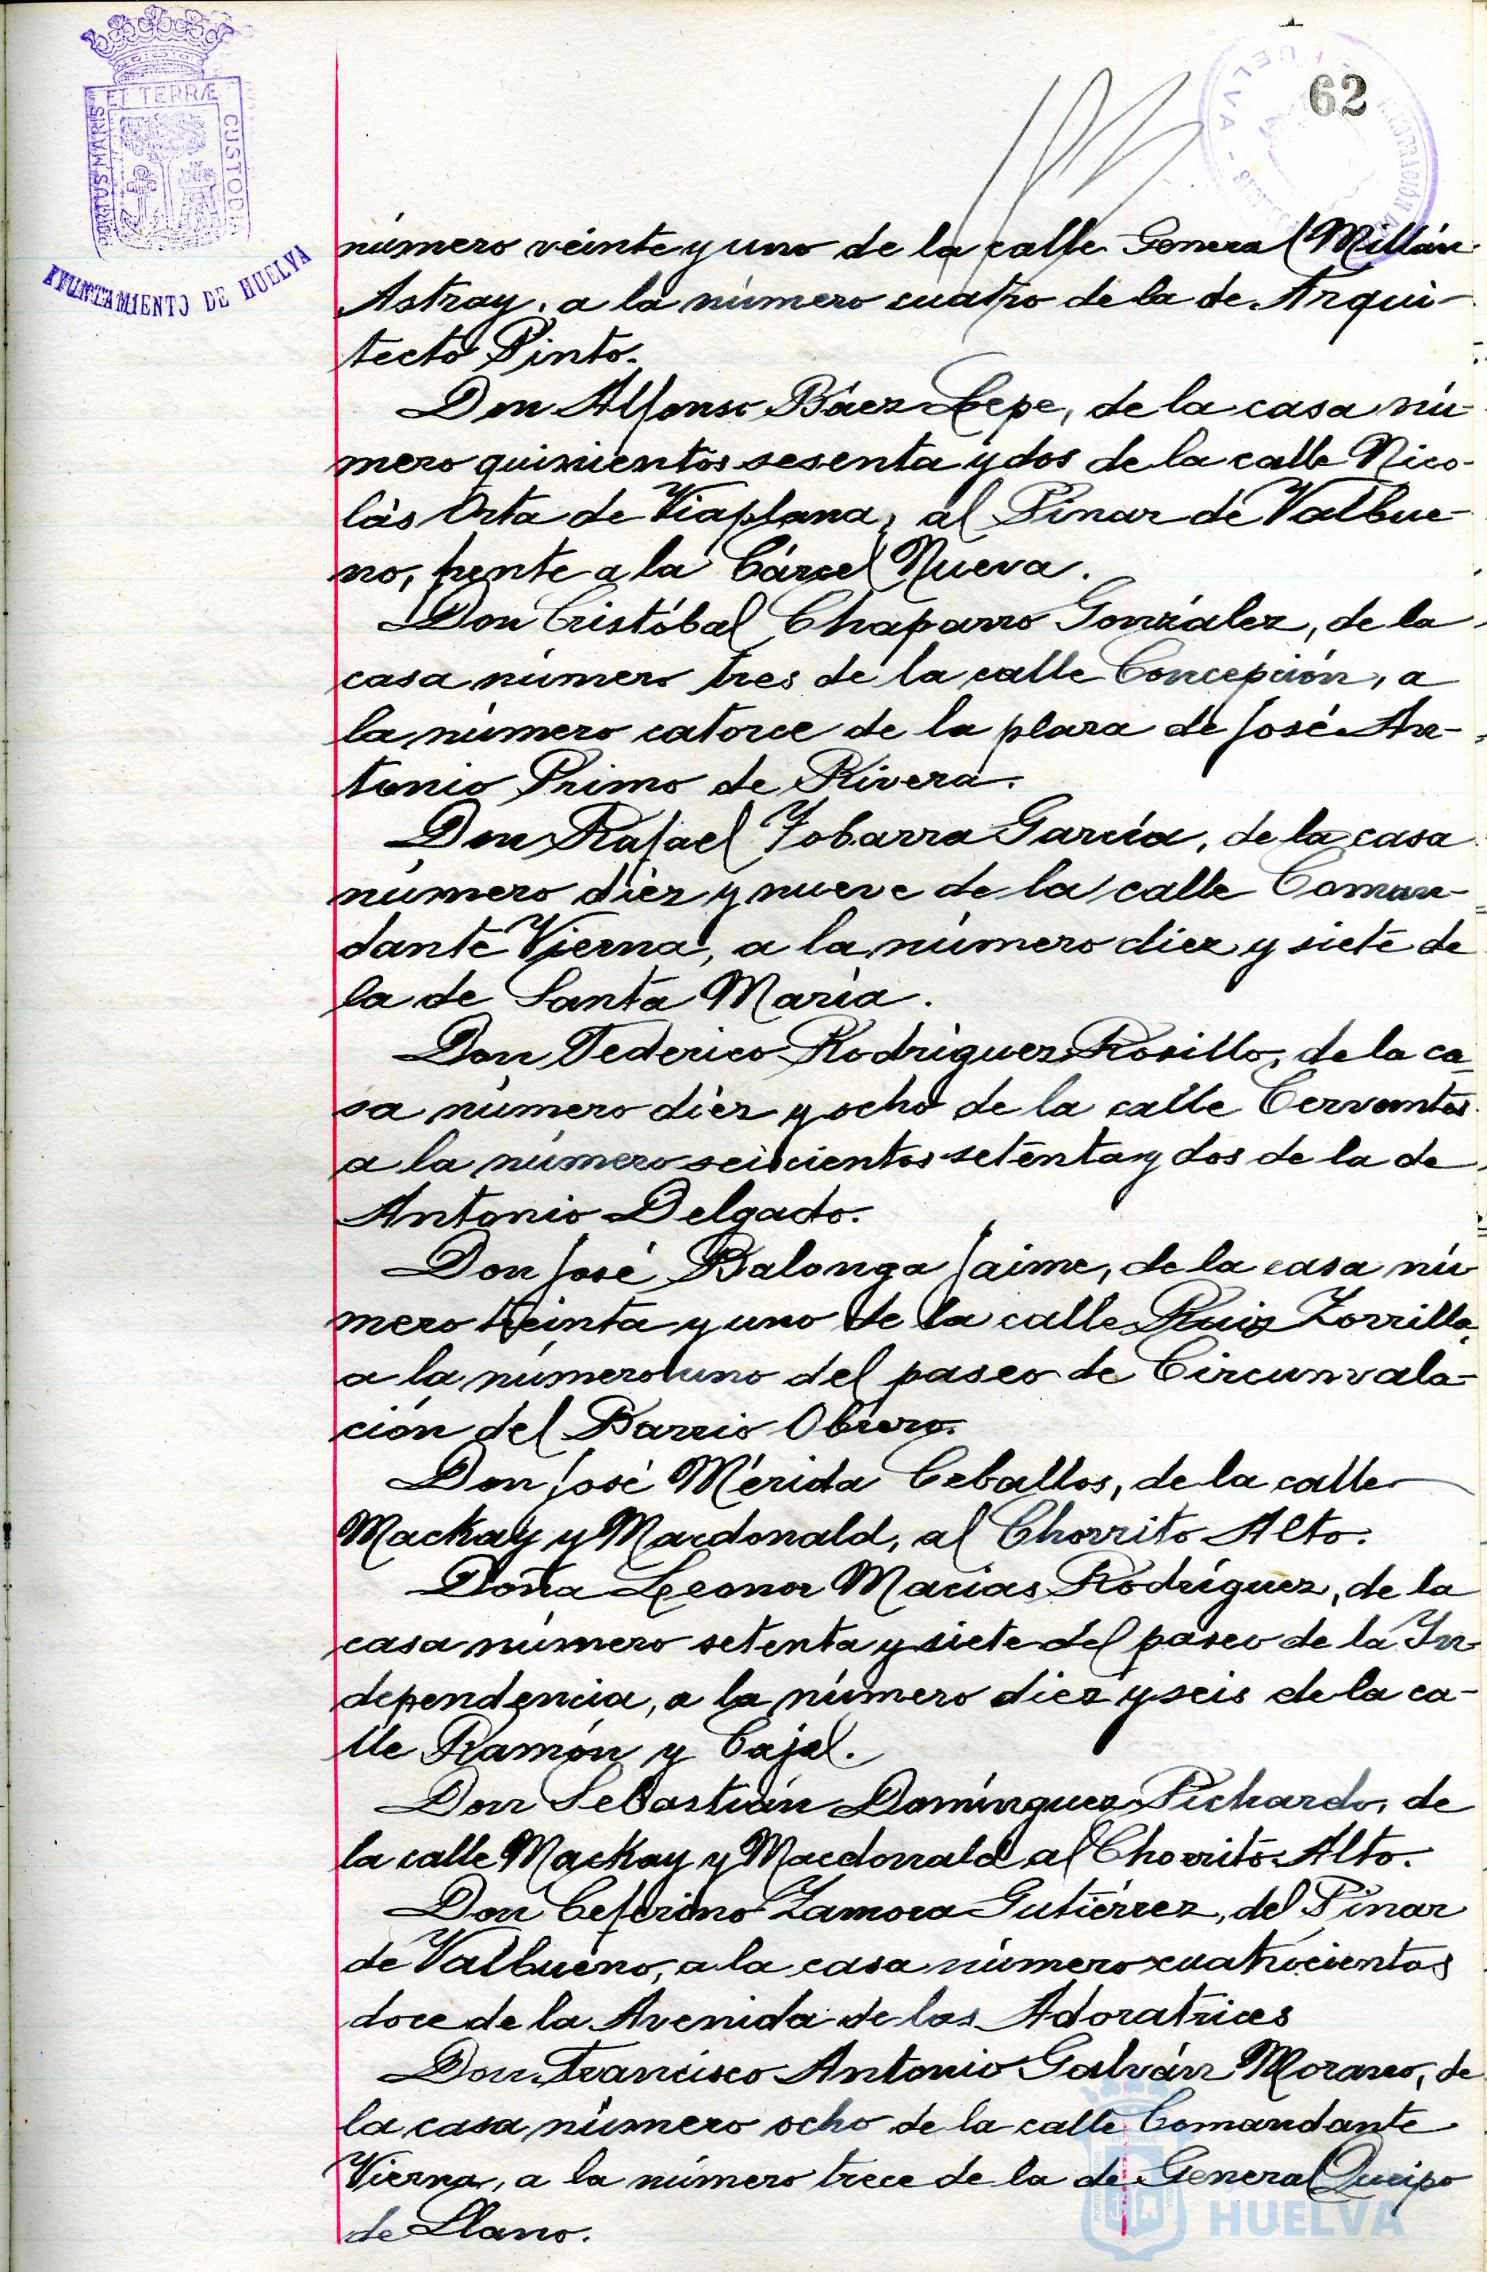 62
PORTUS MARIS ET TERRÆ CUSTODIA
AYUNTAMIENTO DE HUELVA
número veinte y uno de la calle General Millán
Astray, a la número cuatro de la de Arqui-
tecto Pinto.
Don Alfonso Báez Lepe, de la casa nú-
mero quinientos sesenta y dos de la calle Nico-
lás Orta de Viaplana, al Pinar de Valbue-
no, frente a la Cárcel Nueva.
Don Cristóbal Chaparro González, de la
casa número tres de la calle Concepción, a
la número catorce de la plaza de José An-
tonio Primo de Rivera.
Don Rafael Yobarra García, de la casa
número diez y nueve de la calle Coman-
dante Vierna, a la número diez y siete de
la de Santa María.
Don Federico Rodríguez Rosillo, de la ca-
sa número diez y ocho de la calle Cervantes
a la número seiscientos setenta y dos de la de
Antonio Delgado.
Don José Balonga Jaime, de la casa nú-
mero treinta y uno de la calle Ruiz Zorrilla,
a la número uno del paseo de Circunvala-
ción del Barrio Obrero.
Don José Mérida Ceballos, de la calle
Mackay y Macdonald, al Chorrito Alto.
Doña Leonor Macias Rodríguez, de la
casa número setenta y siete del paseo de la In-
dependencia, a la número diez y seis de la ca-
lle Ramón y Cajal.
Don Sebastián Domínguez Pichardo, de
la calle Mackay y Macdonald al Chorrito Alto.
Don Ceferino Zamora Gutiérrez, del Pinar
de Valbueno, a la casa número cuatrocientos
doce de la Avenida de las Adoratrices
Don Francisco Antonio Galván Morano, de
la casa número ocho de la calle Comandante
Vierna, a la número trece de la de General Queipo
de Llano.
HUELVA